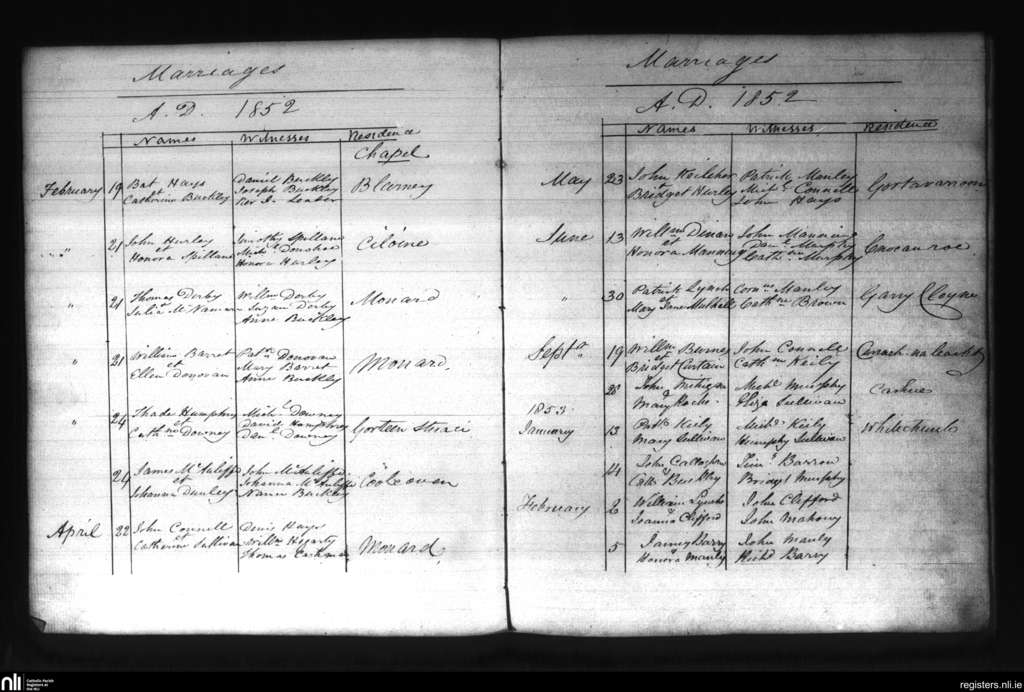 Marriages
A.D. 1852
Names Witnesses Residence
Chapel
February 19 Bat Hays Daniel Buckley Blarney
et Joseph Buckley
Catherine Buckley Rev J. Leader
" 21 John Hurley Timothy Spillane
et Mich.l Donohoe
Honora Spillane Honora Hurley
" 21 Thomas Derby Willm Derby Monard
et Susan Derby
Julia McNamara Anne Buckley
" 21 William Barret Pat.k Donovan Monard
et Mary Barret
Ellen Donovan Anne Buckley
" 24 Thade Humphry Mich.l Downey Gorteen
et David Humphrey
Cathne Downey Den.s Downey
24 James McAuliffe John McAuliffe
et Johanna McAuliffe
Johanna Dunley Nano Buckley
April 22 John Connell Denis Hays Monard
et Willm Hegarty
Catherine Sullivan Thomas Cashman
Marriages
A.D. 1852
Names Witnesses Residence
May 23 John Keileher Patrick Manley
et Mich.l Connell
Bridget Hurley John Hays
June 13 Willm Dinan John Manning
et Dan.l Murphy
Honora Manning Cathne Murphy
" 30 Patrick Lynch Corns Manley Garry Cloyne
et
Mary Jane Mulhall Cathne Brown
Septr 19 Willm Barnes John Connell
et
Bridget Curtain Cathne Keily
28 John Mihigan Mich.l Murphy
Mary Roche Eliza Sullivan
1853
January 13 Patk Keily Mich.l Keily Whitechurch
Mary Sullivan Humphy Sullivan
14 John Callaghan Tim.y Barron
Cath Buckley Bridget Murphy
February 2 William Lynch John Clifford
Joanna Clifford John Mahony
5 James Barry John Manly
Honora Manly Richd Barry
nli
Catholic Parish
Registers at
the NLI
registers.nli.ie